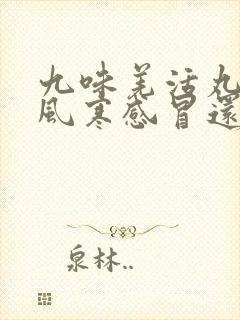 九味羌活丸
風寒感冒還
泉林..